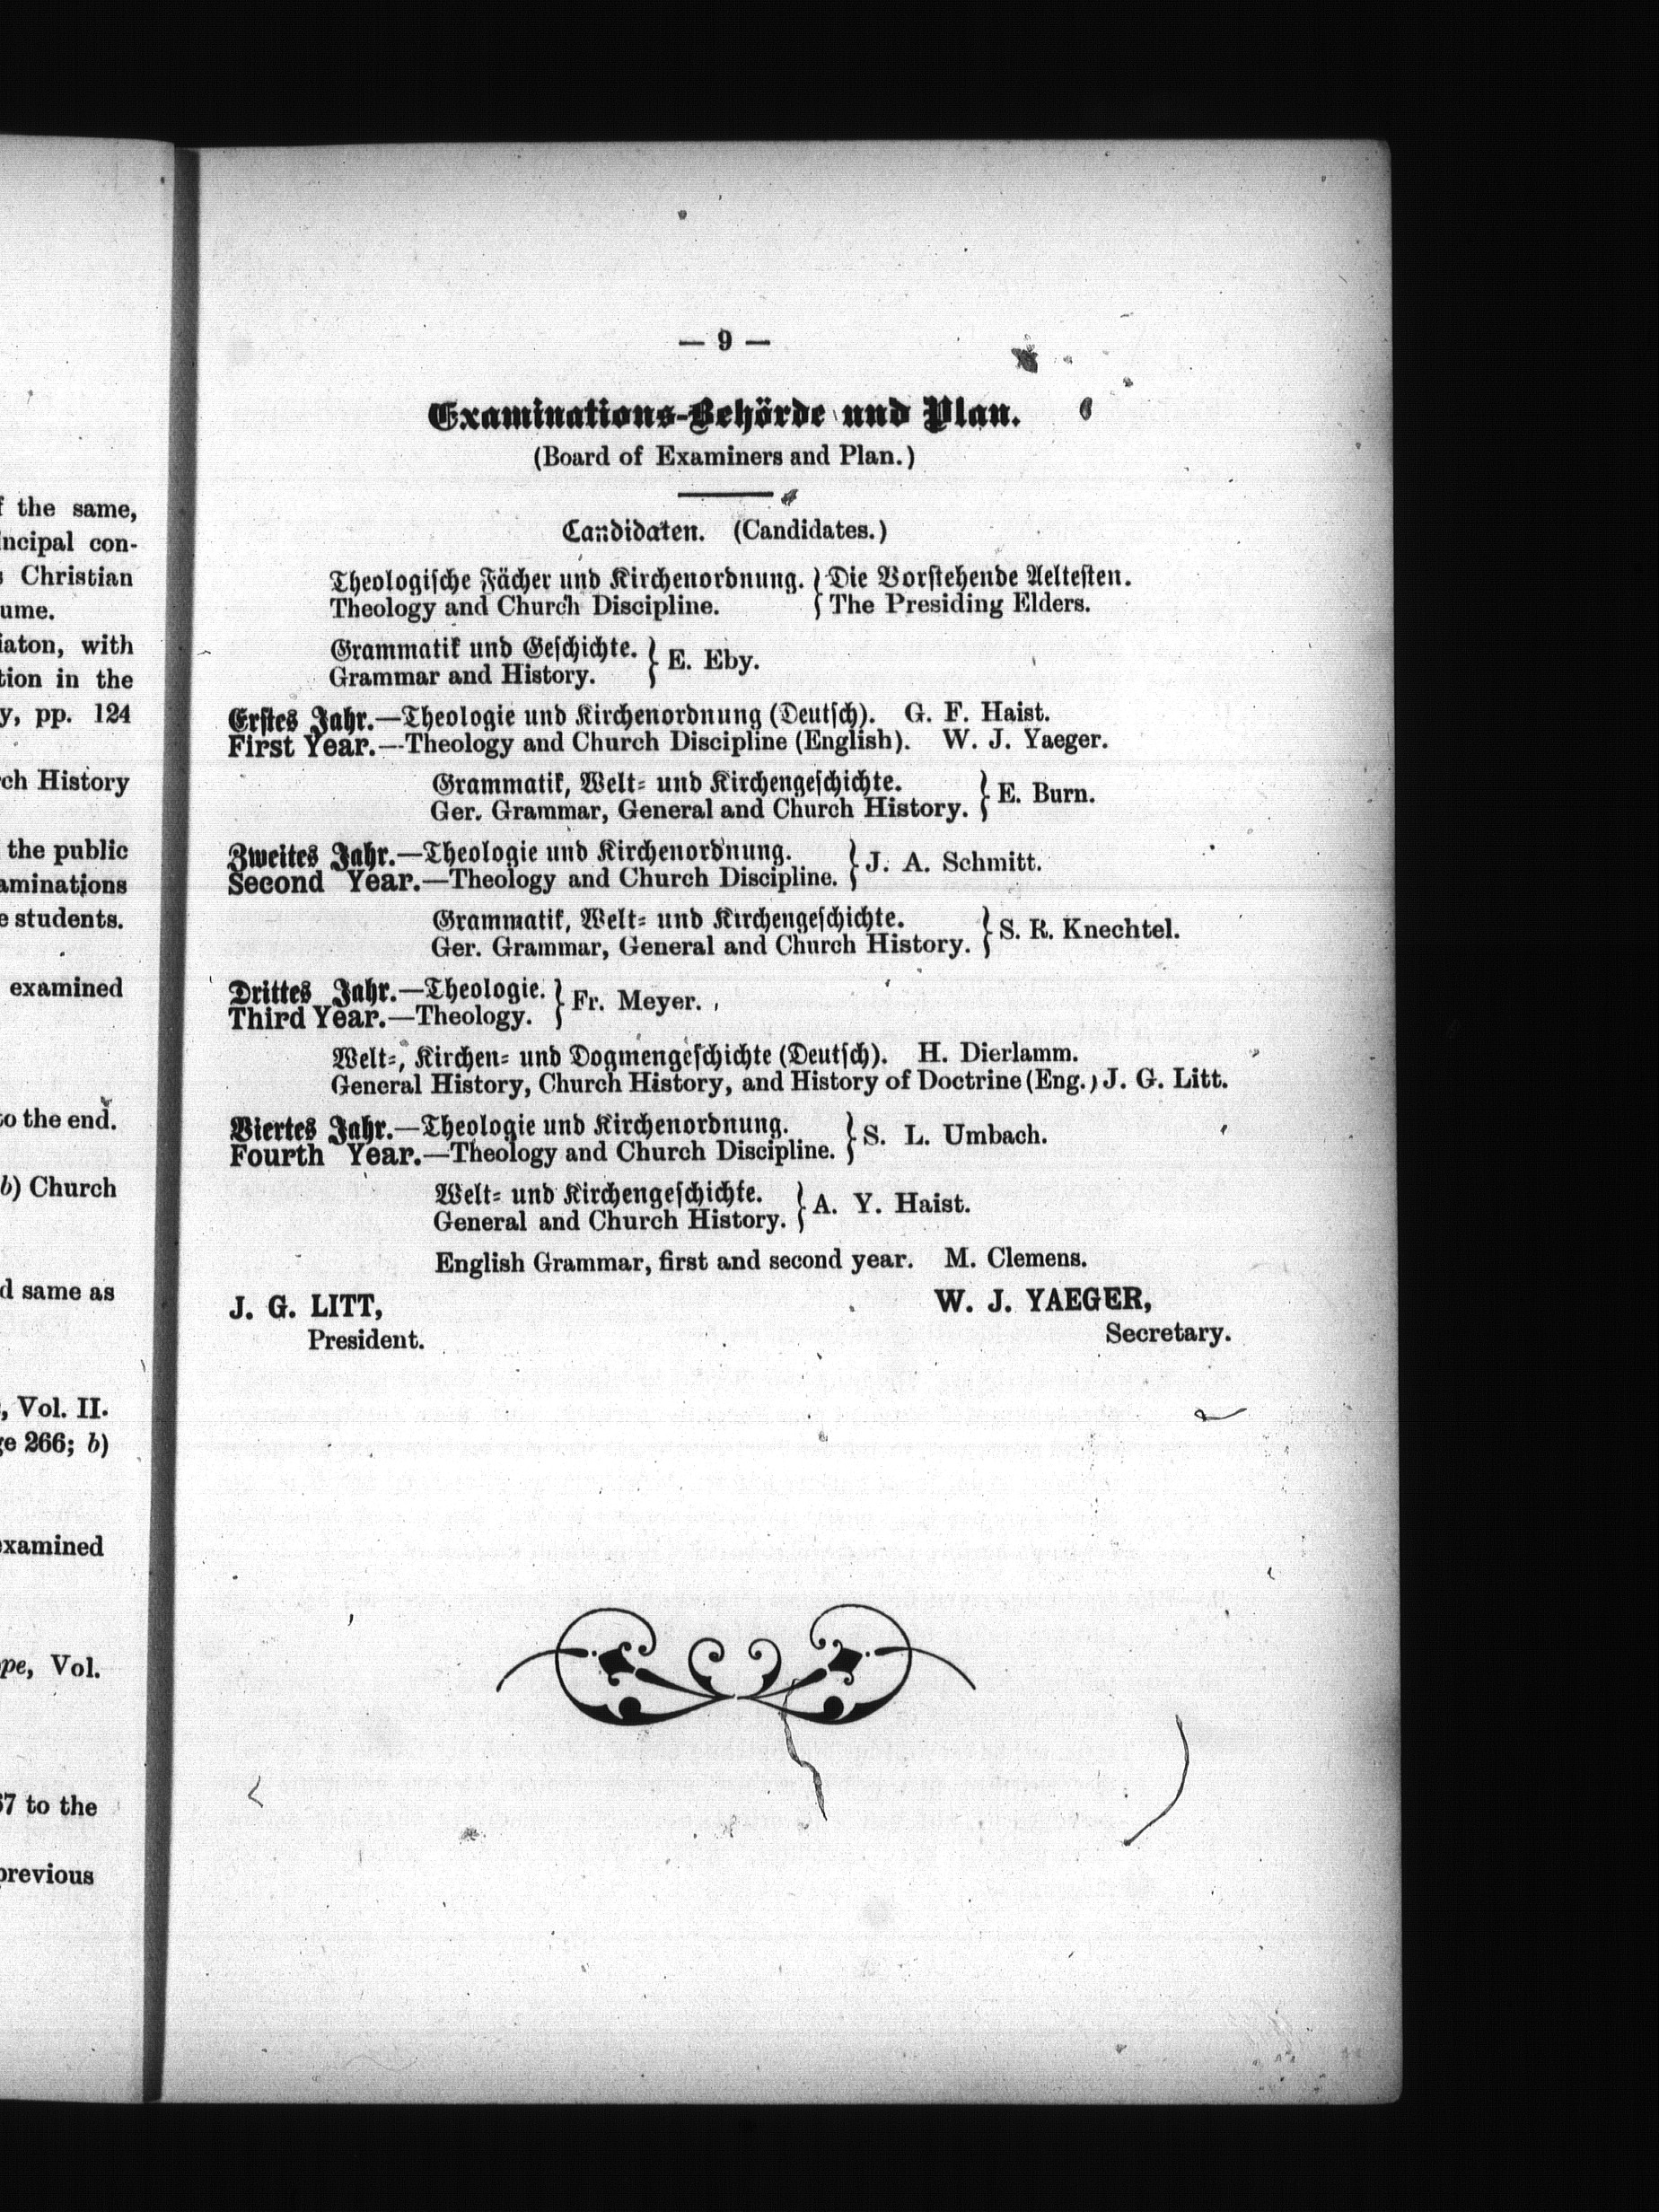 f the same,
ncipal con-
Christian
ume.
iaton, with
tion in the
y, pp. 124
ch History
the public
aminations
e students.
examined
to the end.
b) Church
d same as
, Vol. II.
ge 266; b)
examined
pe, Vol.
67 to the
previous
— 9 —
Examinations-Behörde und Plan.
(Board of Examiners and Plan.)
Candidaten. (Candidates.)
Theologische Fächer und Kirchenordnung. } Die Vorstehende Aeltesten.
Theology and Church Discipline. } The Presiding Elders.
Grammatik und Geschichte.
Grammar and History. } E. Eby.
Erstes Jahr.—Theologie und Kirchenordnung (Deutsch). G. F. Haist.
First Year.—Theology and Church Discipline (English). W. J. Yaeger.
Grammatik, Welt- und Kirchengeschichte.
Ger. Grammar, General and Church History. } E. Burn.
Zweites Jahr.—Theologie und Kirchenordnung.
Second Year.—Theology and Church Discipline. } J. A. Schmitt.
Grammatik, Welt- und Kirchengeschichte.
Ger. Grammar, General and Church History. } S. R. Knechtel.
Drittes Jahr.—Theologie.
Third Year.—Theology. } Fr. Meyer.
Welt-, Kirchen- und Dogmengeschichte (Deutsch). H. Dierlamm.
General History, Church History, and History of Doctrine (Eng.) J. G. Litt.
Viertes Jahr.—Theologie und Kirchenordnung.
Fourth Year.—Theology and Church Discipline. } S. L. Umbach.
Welt- und Kirchengeschichte.
General and Church History. } A. Y. Haist.
English Grammar, first and second year. M. Clemens.
J. G. LITT, W. J. YAEGER,
President. Secretary.